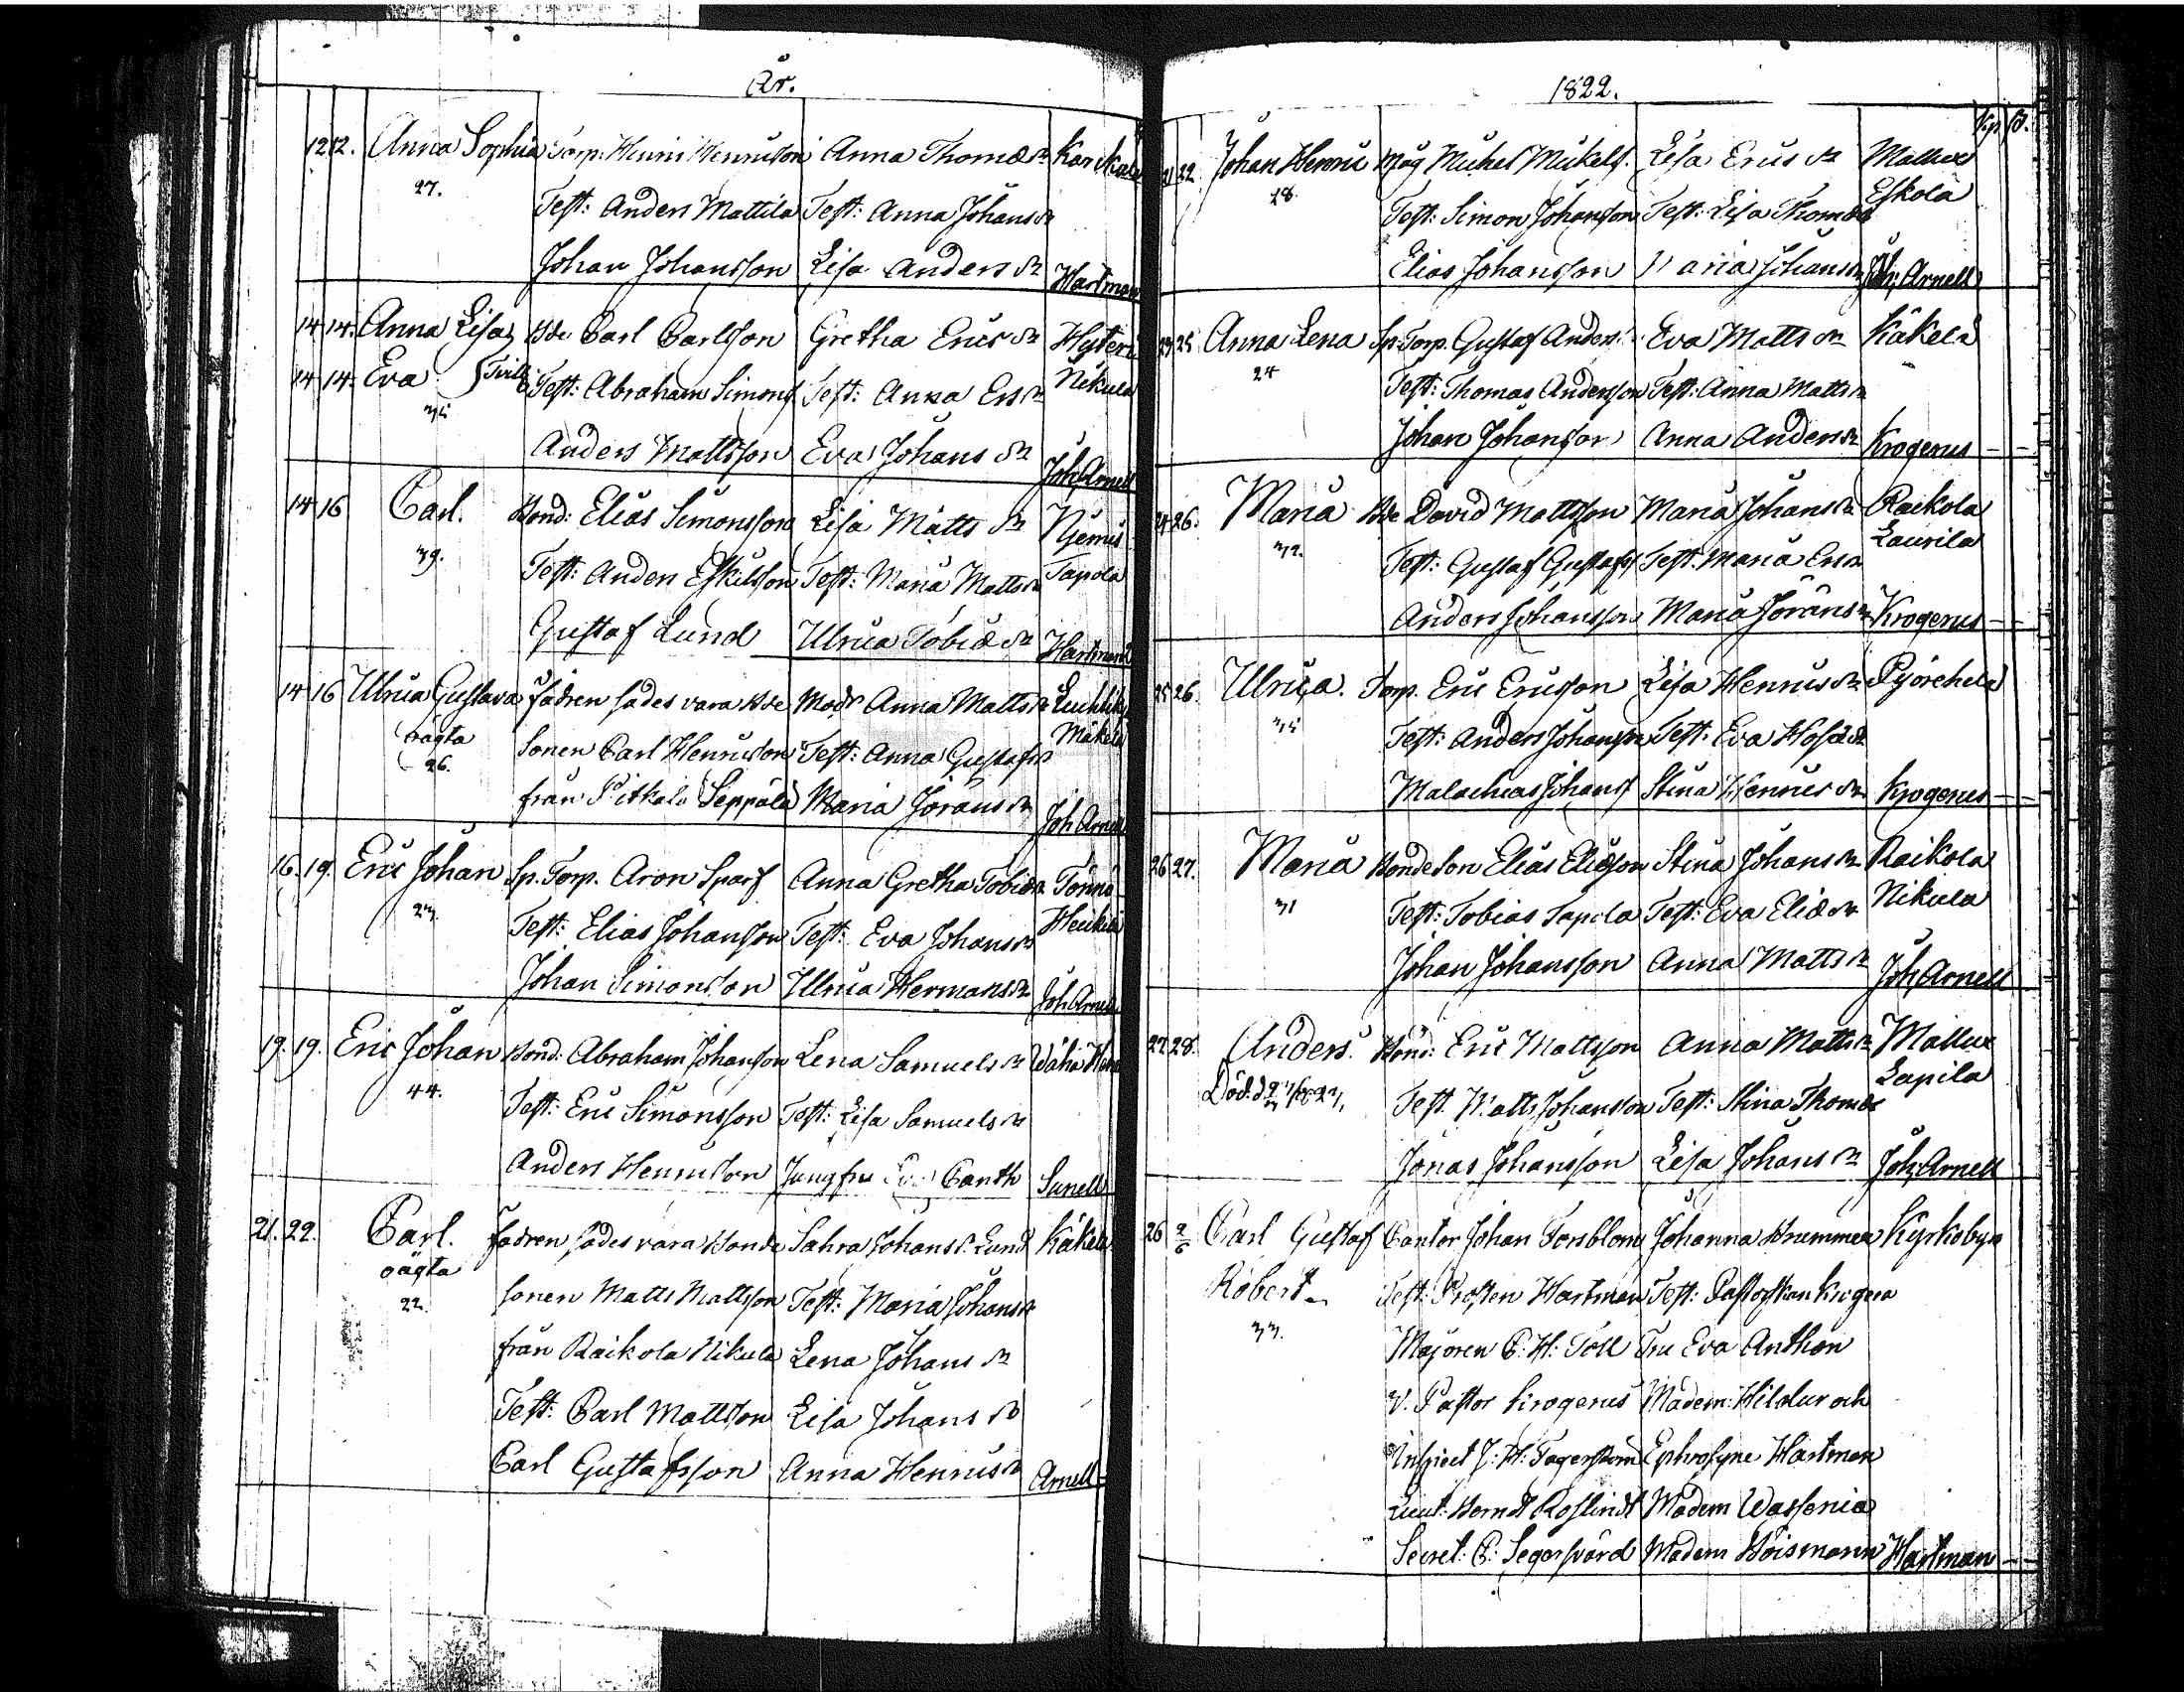 År.
12 12. Anna Sophia Torp. Henric Henricsson Anna Thomæ dr Karskala
27. Test: Anders Mattila Test: Anna Johans dr
Johan Johansson Lisa Anders dr Hartman
14 14. Anna Lisa Bde Carl Carlsson Gretha Erics dr Hyteri
14 14. Eva Tvill. Test: Abraham Simons. Test: Anna Ers dr Nikula
35 Anders Mattsson Eva Johans dr Joh. Arnell
14 16 Carl. Bond: Elias Simonsson Lisa Matts dr Njemis
39. Test: Anders Eskilsson Test: Maria Matts dr Tapola
Gustaf Lund Ulrica Tobiæ dr Hartman
14 16 Ulrica Gustava Fadren sades vara Bde Modr Anna Matts dr
oägta sonen Carl Henricsson Test: Anna Gustafs dr Mäkelä
26. från Pitkälä Seppälä Maria Jörans dr Joh. Arnell
16. 19. Eric Johan Sp. Torp. Aron Sparf Anna Gretha Tobiæ dr
23. Test: Elias Johansson Test: Eva Johans dr Heikilä
Johan Simonsson Ulrica Hermans dr Joh. Arnell
19. 19. Eric Johan Bond: Abraham Johansson Lena Samuels dr
44. Test: Eric Simonsson Test: Lisa Samuels dr
Anders Henricsson Jungfru Canth Sunell
21. 22. Carl. Fadren sades vara Bonde Sahra Johans d. Lund Käkelä
oägta sonen Matts Mattsson Test: Maria Johans dr
22. från Raikola Nikula Lena Johans dr
Test: Carl Mattsson Lisa Johans dr
Carl Gustafsson Anna Henrics dr Arnell
1822.
21 22. Johan Henric Måg Michel Mickels. Lisa Erics dr Mallux
28. Test: Simon Johansson Test: Lisa Thomæ dr Eskola
Elias Johansson Maria Johans dr Joh. Arnell
23 25 Anna Lena Sp. Torp. Gustaf Anders. Eva Matts dr Käkelä
24 Test: Thomas Andersson Test: Anna Matts dr
Johan Johansson Anna Anders dr Krogerus
24 26. Maria Bde David Mattsson Maria Johans dr Raikola
32. Test: Gustaf Gustafs. Test. Maria Ers dr Laurila
Anders Johansson Maria Jörans dr Krogerus
25 26. Ulrica. Torp. Eric Ericsson Lisa Henrics dr Pyörehelä
35 Test: Anders Johansson Test: Eva Hosæ dr
Malachias Johans. Stina Henrics dr Krogerus
26 27. Maria Bondeson Elias Eliæson Stina Johans dr Raikola
31 Test: Tobias Tapola Test: Eva Eliæ dr Nikula
Johan Johansson Anna Matts dr Joh. Arnell
27 28. Anders. Bond: Eric Mattsson Anna Matts dr Mallux
Död. Test. Matts Johansson Test: Stina Thomæ Lapila
Jonas Johansson Lisa Johans dr Joh. Arnell
26 2/6 Carl Gustaf Cantor Johan Forsblom Johanna Brummer Kyrkobyn
Robert Test. Prosten Hartman Test: Pastorskan Krogera
33. Majoren C: H: Toll Fru Eva Anthon
V. Pastor Krogerus Madem: Hildur och
Inspect J: H: Fagerström Ephrosyne Hartman
Lieut: Berndt Roslindt Madem Wassenia
Secret: C: Segersvärd Madem Boismann Hartman